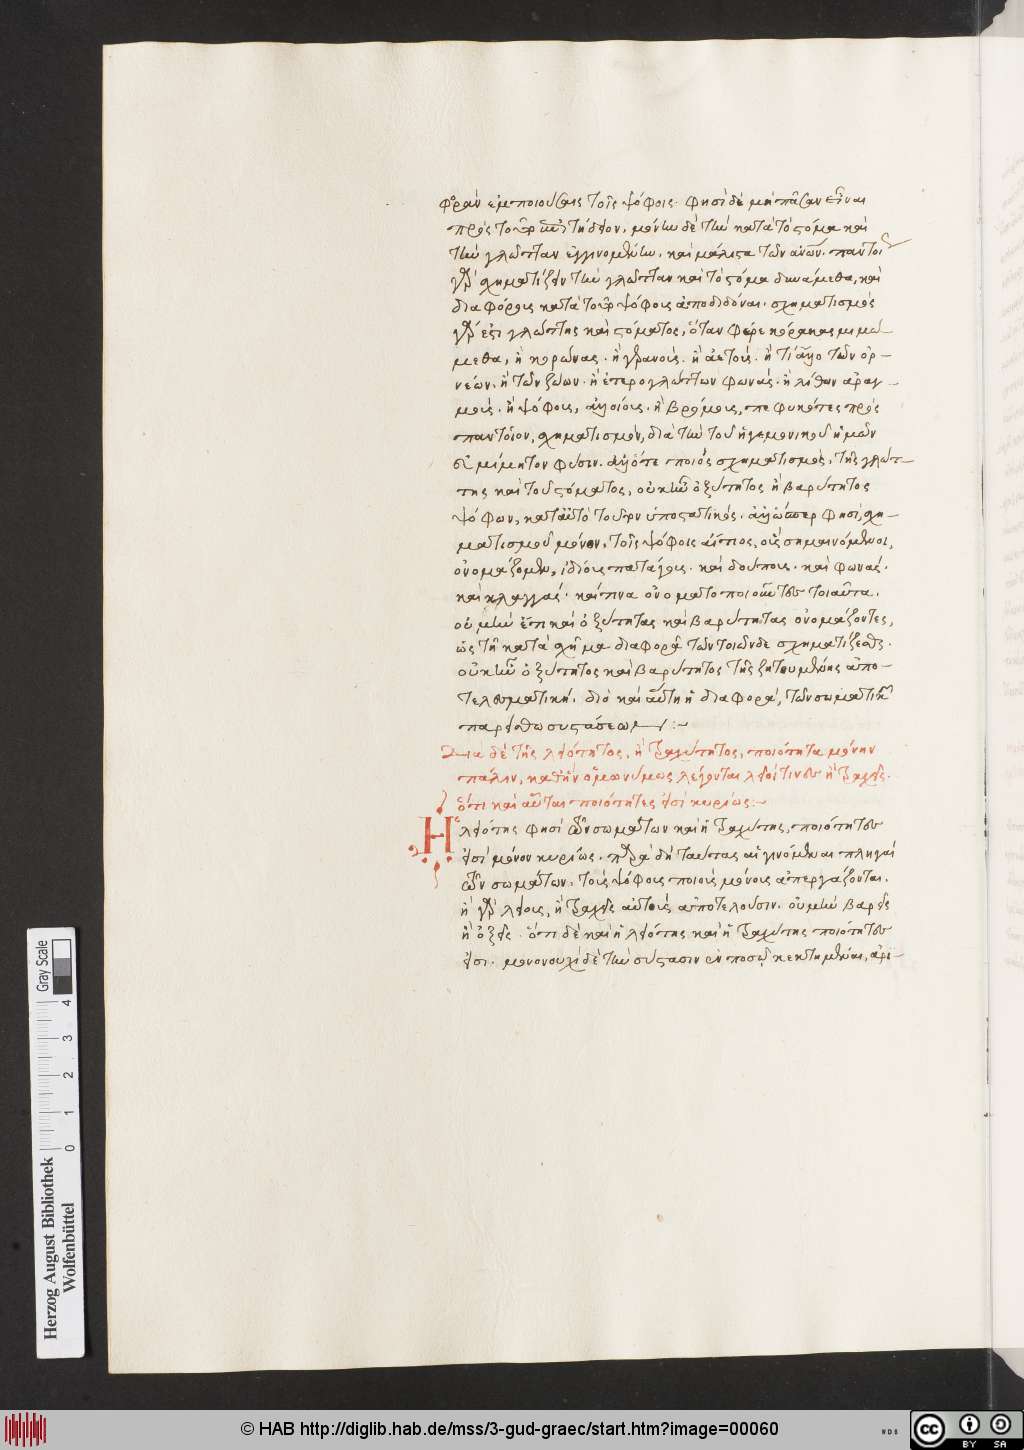 φορὰν ἐμποιούσαις τοῖς ψόφοις. φησὶ δὲ μὴ πᾶσαν εἶναι
πρὸς τοῦτο ἐπιτήδειον, μόνην δὲ τὴν κατὰ τὸ στόμα καὶ
τὴν γλῶτταν ἐγγινομένην. καὶ μάλιστα τῶν ἀνῶν. παντοί
γὰρ σχηματίζειν τὴν γλῶτταν καὶ τὸ στόμα δυνάμεθα, καὶ
διαφόρους κατὰ τοῦτο ψόφους ἀποδιδόναι. σχηματισμὸς
γάρ ἐστι γλώττης καὶ στόματος, ὅταν φέρε κόρακας μιμώ-
μεθα, ἢ κορώνας. ἢ γεράνους. ἢ ἀετούς. ἢ τι ἄλλο τῶν ὀρ-
νέων. ἢ τῶν ζώων. ἢ ἑτερογλώττων φωνάς. ἢ λίθων ἀραγ-
μούς. ἢ ψόφους, ἀλλοίους. ἢ βρόμους, πεφυκότες πρὸς
παντοῖον, σχηματισμὸν, διὰ τὴν τοῦ ἡγεμονικοῦ ἡμῶν
εὐμίμητον φύσιν. ἀλλ' ὅτε ποιὸς σχηματισμὸς, τῆς γλώτ-
της καὶ τοῦ στόματος, οὐκ ἦν ὀξύτητος ἢ βαρύτητος
ψόφων, κατ' αὐτὸ τοῦτο ὑποστατικός. ἀλλ' ὥσπερ φησὶ, σχη-
ματισμοῦ μόνον, τοῖς ψόφοις αἴτιος, οὓς σημαινόμενοι,
ὀνομάζομεν, ἰδίους πατάγους. καὶ δούπους. καὶ φωνάς.
καὶ κλαγγάς. καί τινα ὀνοματοποιοῦντες τοιαῦτα.
οὐ μὴν ἔτι καὶ ὀξύτητας καὶ βαρύτητας ὀνομάζοντες,
ὡς τῇ κατὰ σχῆμα διαφορᾷ τῶν τοιῶνδε σχηματίζεσθαι.
οὐκ ἦν ὀξύτητος καὶ βαρύτητος τῆς ζητουμένης ἀπο-
τελεσματική. διὸ καὶ αὕτη ἡ διαφορά, τῶν σωματικῶν
παρείσθω συστάσεων :~
Διὰ δὲ τῆς λειότητος, ἢ τραχύτητος, ποιότητα μόνην
πάλιν, καθ' ἣν ὁμωνύμως λέγονται λεῖοί τινες ἢ τραχεῖς.
ὅτι καὶ αὗται ποιότητές εἰσι κυρίως :~
Ἡ λειότης φησὶ τῶν σωμάτων καὶ ἡ τραχύτης, ποιότητες
εἰσὶ μόνον κυρίως. παρὰ δὴ ταύτας αἱ γινόμεναι πληγαὶ
τῶν σωμάτων. τοὺς ψόφους ποιοὺς μόνους ἀπεργάζονται.
ἢ γὰρ λείους, ἢ τραχεῖς αὐτοὺς ἀποτελοῦσιν. οὐ μὴν βαρεῖς
ἢ ὀξεῖς. ὅτι δὲ καὶ ἡ λειότης καὶ ἡ τραχύτης ποιότητες
εἰσι. μονονουχὶ δὲ τὴν σύστασιν ἐν ποσῷ κεκτημέναι, ἀρι-
Herzog August Bibliothek
Wolfenbüttel
Gray Scale
0 1 2 3 4
© HAB http://diglib.hab.de/mss/3-gud-graec/start.htm?image=00060
WDB
cc BY SA